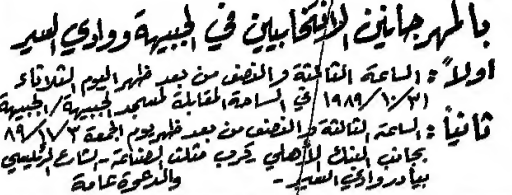 بالمهرجانين الانتخابيين في الجبيهة ووادي السير
اولاً : الساعة الثالثة والنصف من بعد ظهر اليوم الثلاثاء
٣١/١٠/١٩٨٩ في الساحة المقابلة لمسجد الجبيهة/الجبيهة
ثانياً : الساعة الثالثة والنصف من بعد ظهر يوم الجمعة ٣/١١/٨٩
بجانب البنك الأهلي - قرب مثلث الصناعة - الشارع الرئيسي
بيادر وادي السير - والدعوة عامة